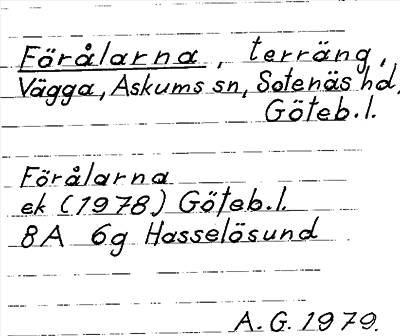 Förålarna, terräng,
Vägga, Askums sn, Sotenäs hd,
Göteb.l.
Förålarna
ek (1978) Göteb.l.
8A 6g Hasselösund
A.G. 1979.